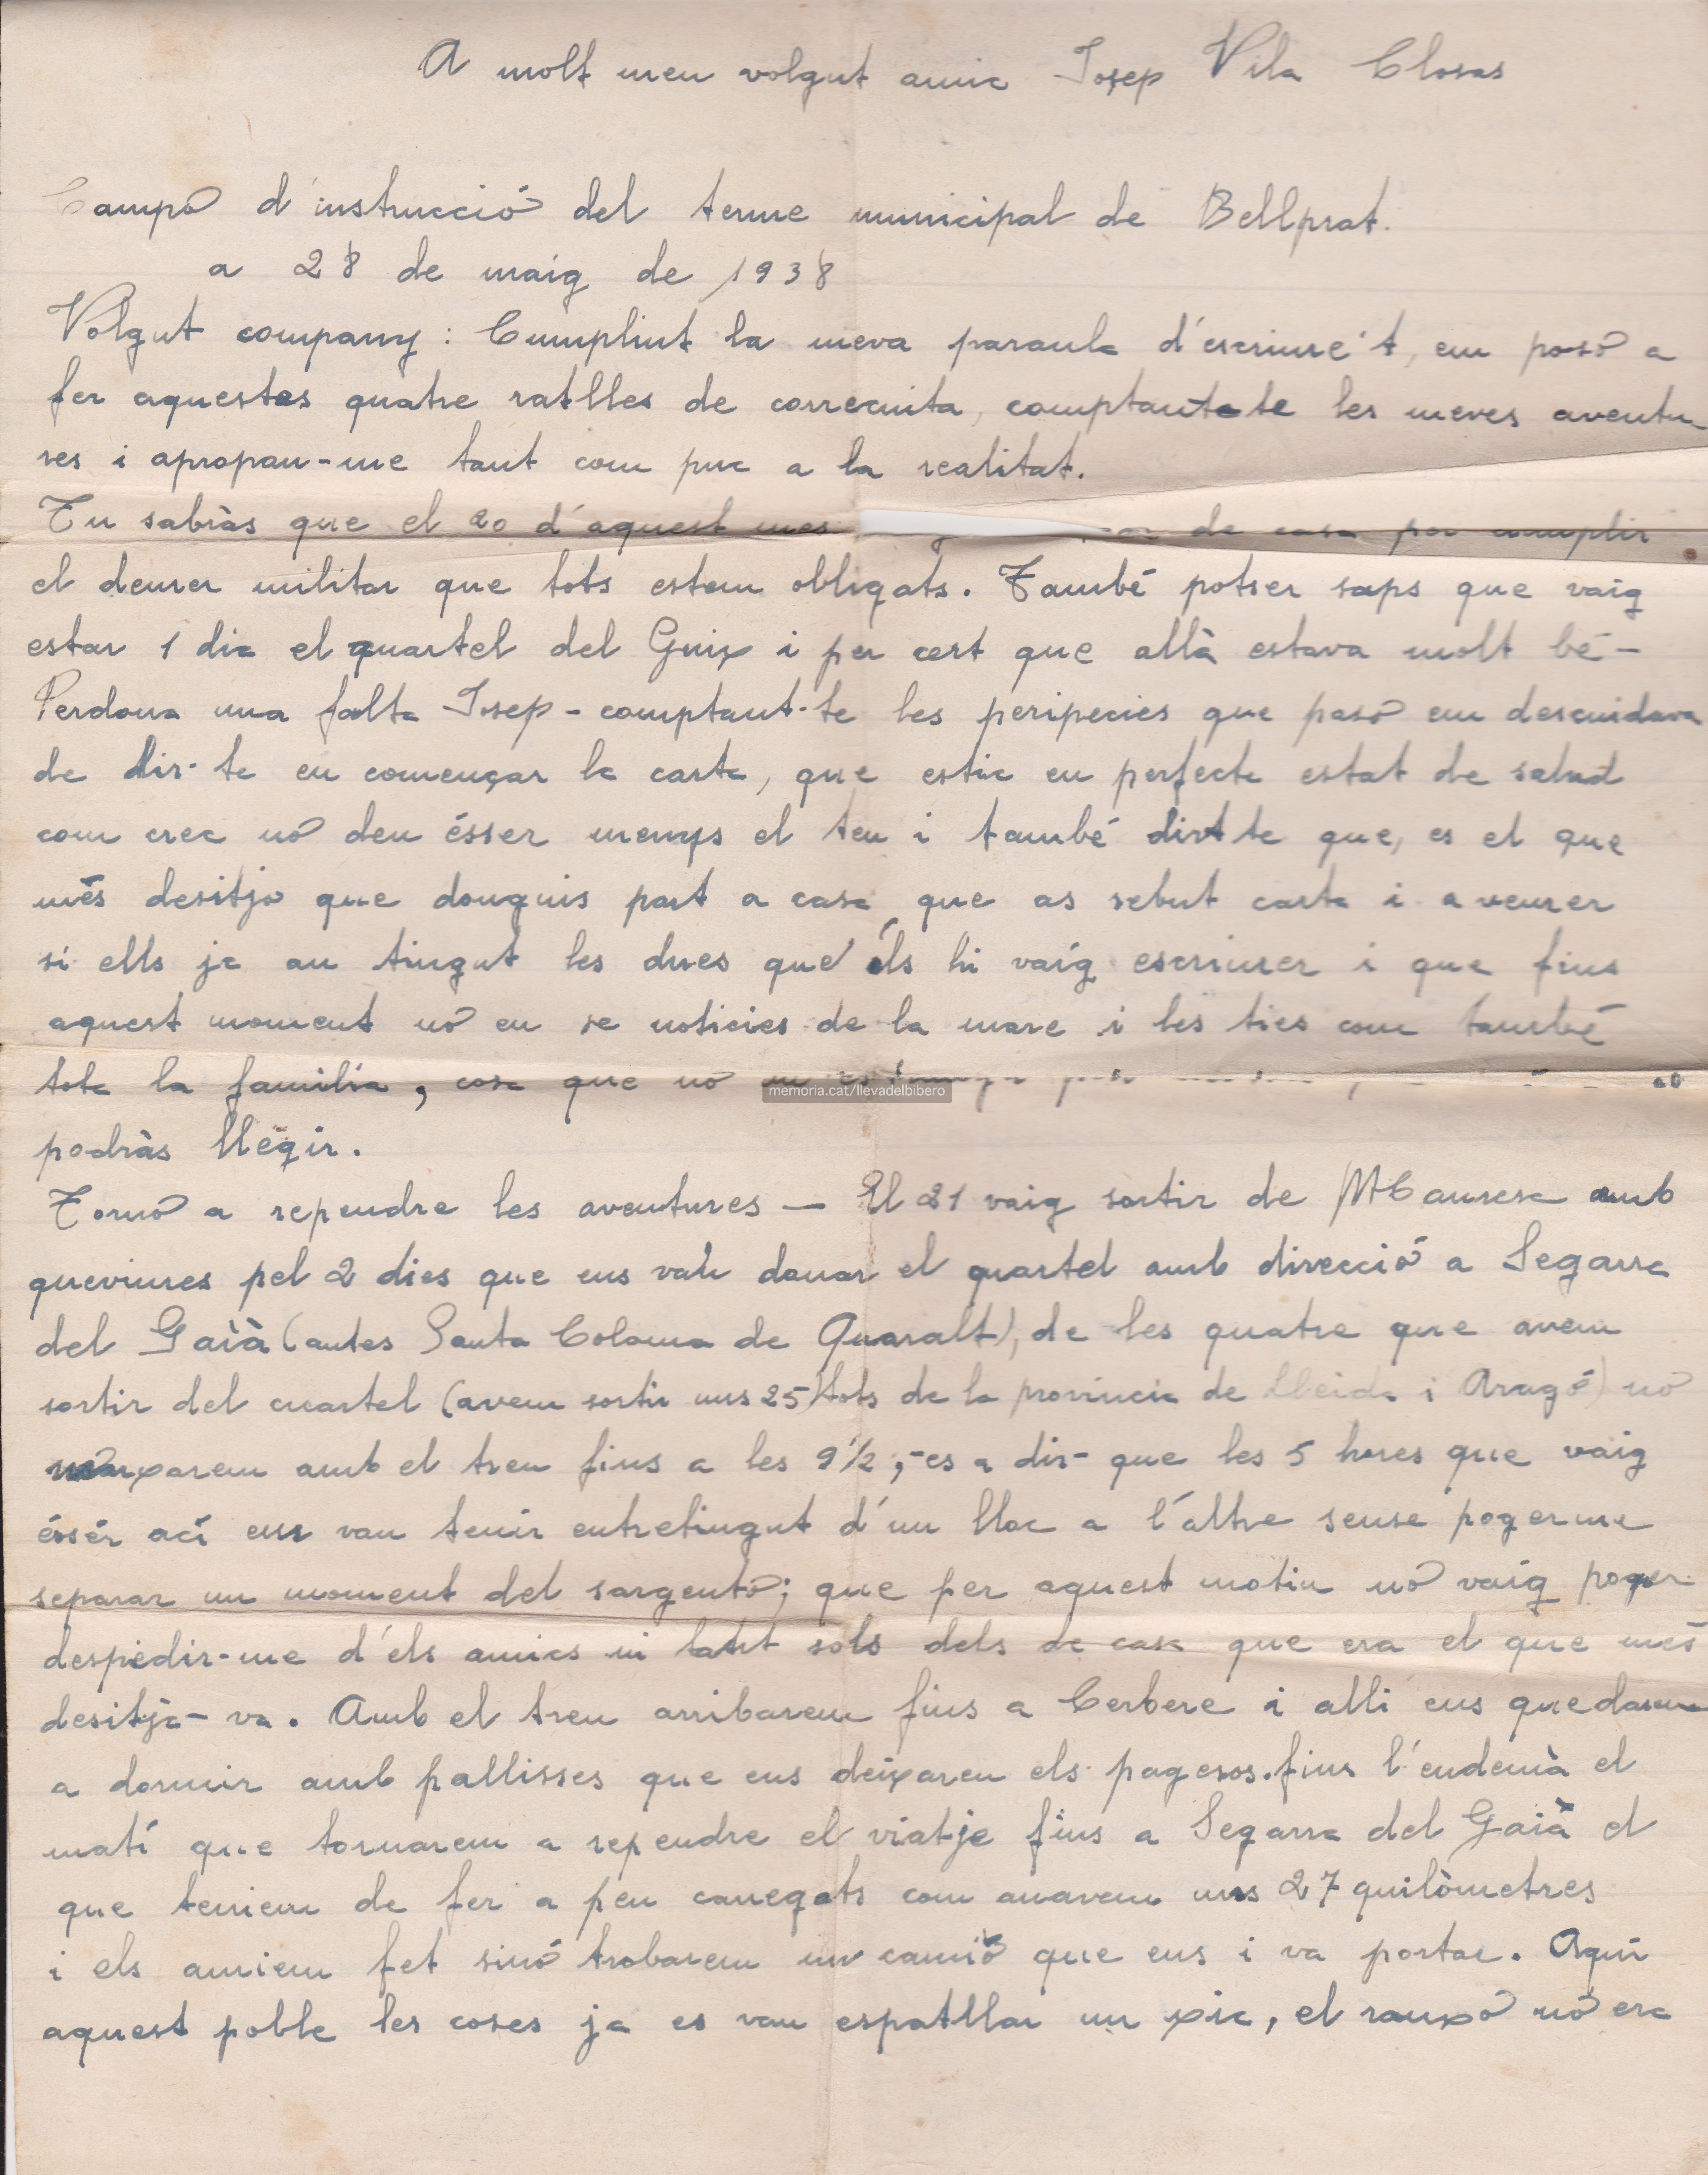 A molt meu volgut amic Josep Vila Closas
Campo d'instrucció del terme municipal de Bellprat.
a 28 de maig de 1938
Volgut company: Cumplint la meva paraula d'escriure't, em poso a
fer aquestes quatre ratlles de correcuita, comptantte les meves aventu-
res i apropan-me tant com puc a la realitat.
Tu sabràs que el 20 d'aquest mes de casa per cumplir
el deurer militar que tots estem obligats. També potser saps que vaig
estar 1 dia el quartel del Guix i per cert que allà estava molt bé-
Perdona una falta Josep - comptant-te les peripecies que paso em descuidava
de dir-te en començar la carta, que estic en perfecte estat de salud
com crec no deu ésser menys el teu i també dirtte que, es el que
més desitjo que donguis part a casa que as rebut carta i a veurer
si ells ja an tingut les dues que éls hi vaig escriurer i que fins
aquest moment no en se noticies de la mare i les ties com també
tota la familia, cosa que no
memoria.cat/llevadelbibero
podràs llegir.
Torno a rependre les aventures — El 21 vaig sortir de Manresa amb
queviures pel 2 dies que ens van donar el quartel amb direcció a Segarra
del Gaià (antes Santa Coloma de Queralt), de les quatre que avem
sortir del cuartel (avem sortir uns 25) tots de la provincia de Lleida i Aragó) no
marxarem amb el tren fins a les 9½, -es a dir- que les 5 hores que vaig
ésser ací ens van tenir entretingut d'un lloc a l'altre sense pogerme
separar un moment del sargento; que per aquest motiu no vaig poger
despedir-me d'els amics ni tant sols dels de casa que era el que més
desitja-va. Amb el tren arribarem fins a Cerbere i alli ens quedarem
a dormir amb pallisses que ens deixaren els pagesos. fins l'endemà el
matí que tornarem a rependre el viatje fins a Segarra del Gaià el
que teniem de fer a peu carregats com anavem uns 27 quilòmetres
i els auriem fet sinó trobarem un camió que ens i va portar. Aquí
aquest poble les coses ja es van espatllar un xic, el ranxo no era